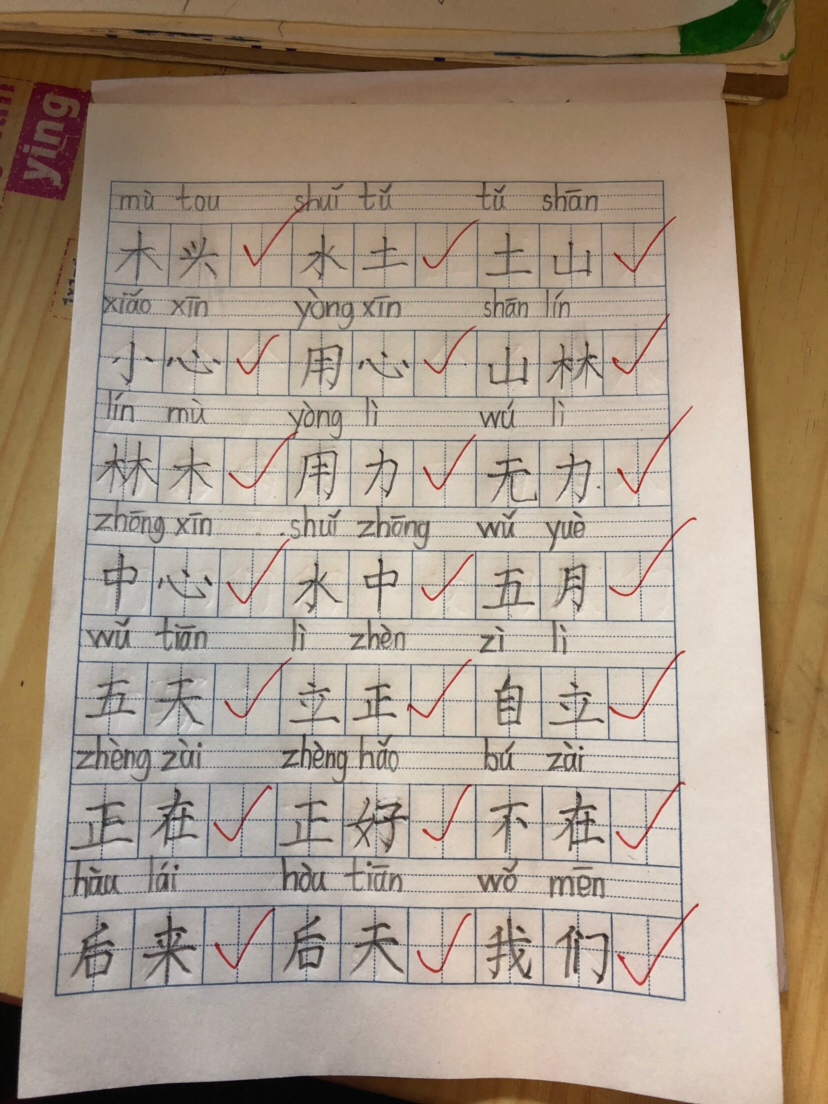 ying
mù tou shuǐ tǔ tǔ shān
木头 水土 土山
xiǎo xīn yòng xīn shān lín
小心 用心 山林
lín mù yòng lì wú lì
林木 用力 无力
zhōng xīn shuǐ zhōng wǔ yuè
中心 水中 五月
wǔ tiān lì zhèn zì lì
五天 立正 自立
zhèng zài zhèng hǎo bú zài
正在 正好 不在
hàu lái hòu tiān wǒ mēn
后来 后天 我们